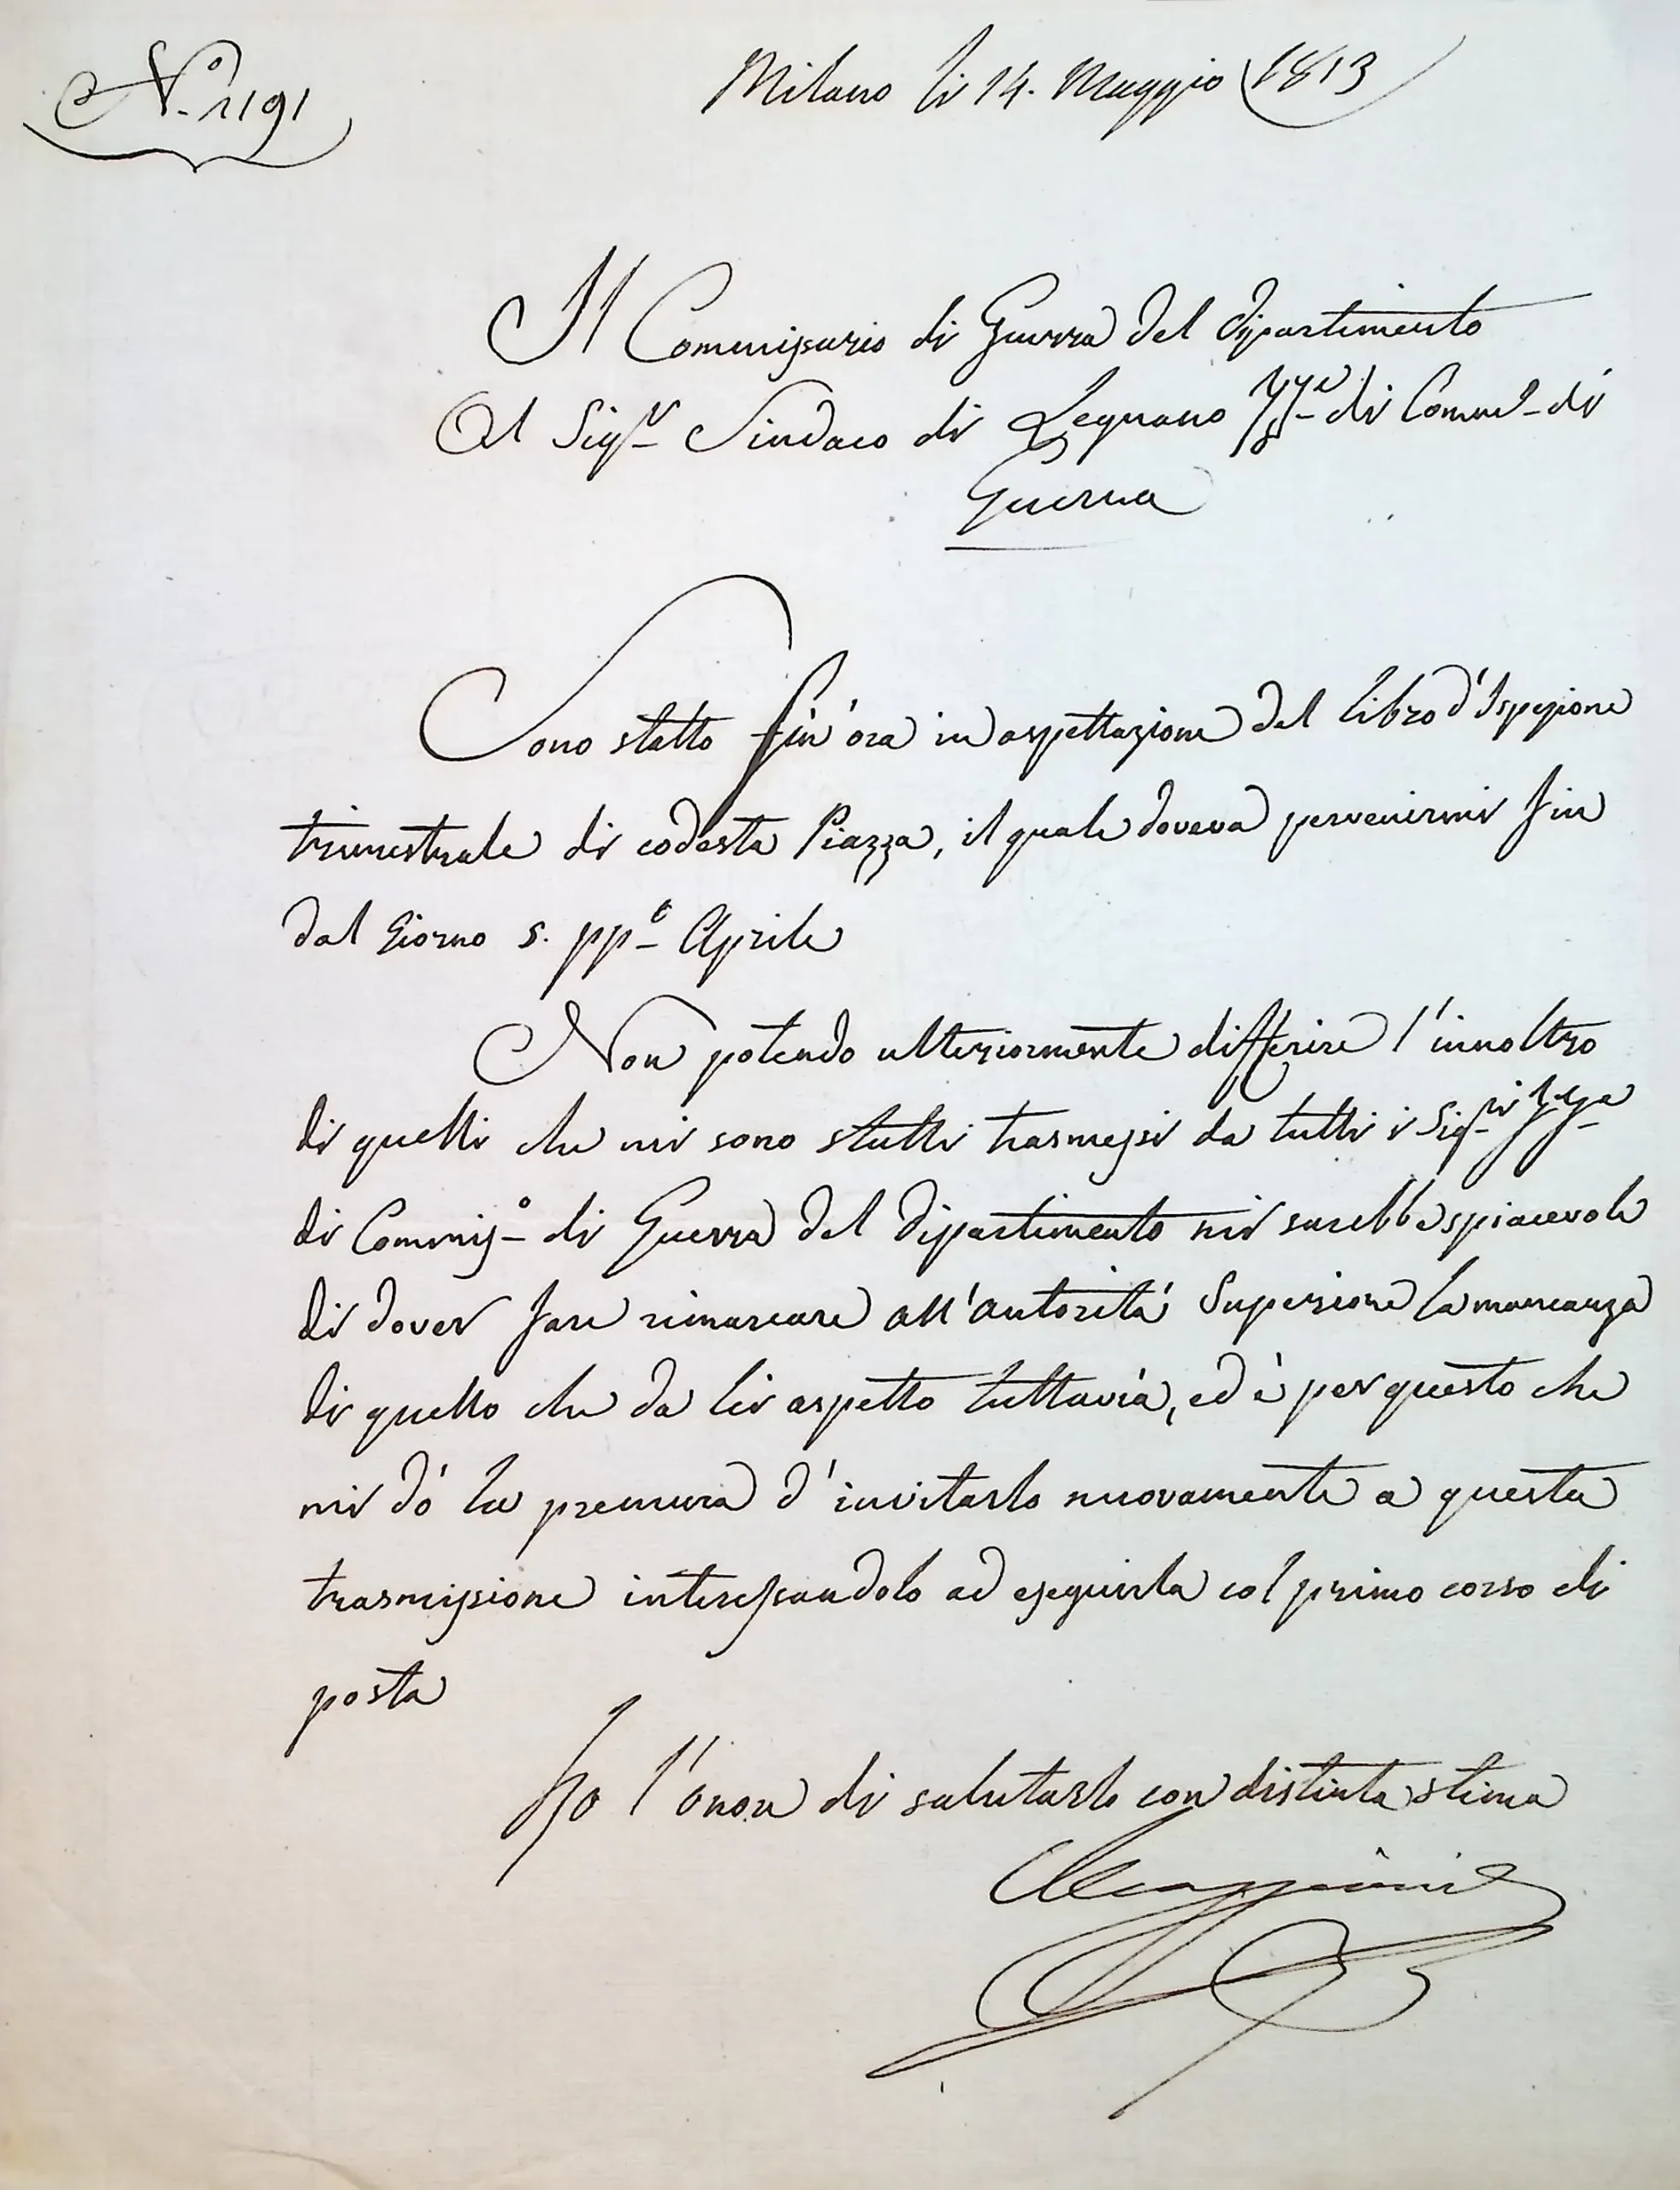 N.º 1191
Milano li 14. Maggio 1813
Il Commissario di Guerra del Dipartimento
Al Sig.r Sindaco di Legnano ff.e di Comm.o di
Guerra
Sono statto fin'ora in aspettazione del Libro d'Ispezione
trimestrale di codesta Piazza, il quale doveva pervenirmi fin
dal Giorno 5. pp.o Aprile
Non potendo ulteriormente differire l'innoltro
di quelli che mi sono statti trasmessi da tutti i Sig.ri
di Commiss.o di Guerra del Dipartimento mi sarebbe spiacevole
di dover fare rimarcare all'autorità Superiore la mancanza
di quello che da Lei aspetto tuttavia, ed è per questo che
mi dò la premura d'invitarlo nuovamente a questa
trasmissione interessandolo ad eseguirla col primo corso di
posta
Ho l'onore di salutarlo con distinta stima